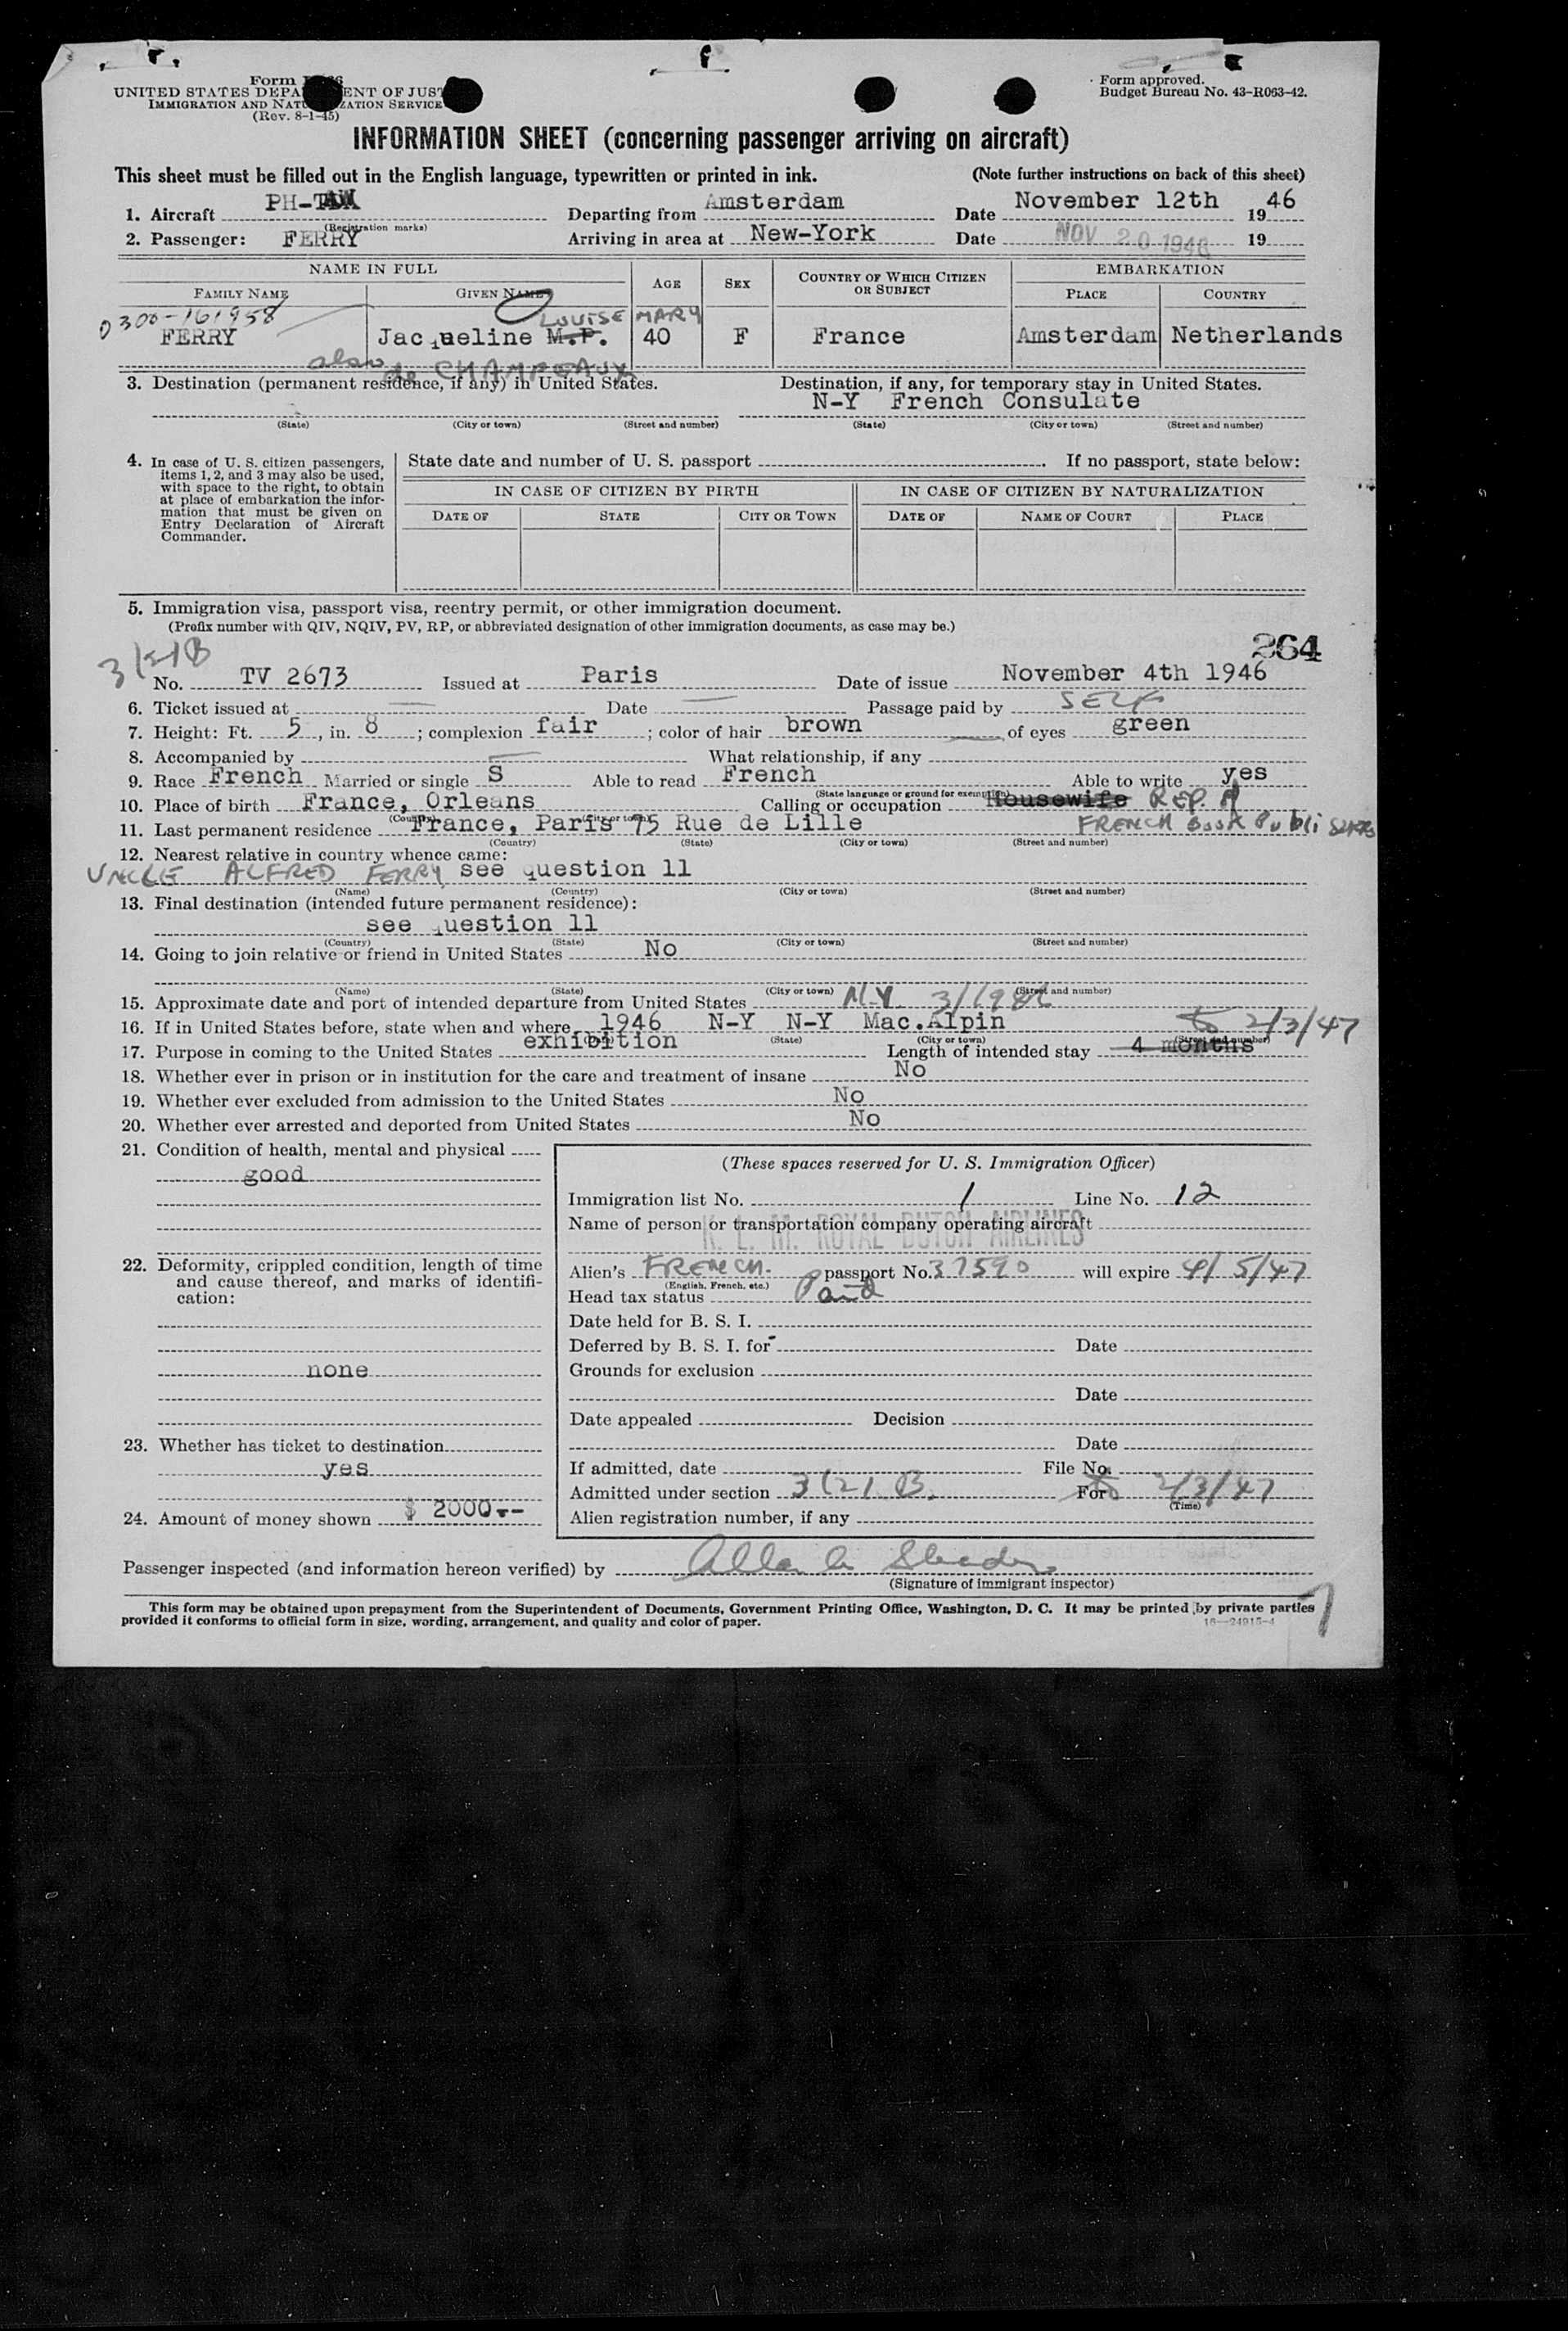 Form
UNITED STATES DEPA ENT OF JUST
IMMIGRATION AND NATU IZATION SERVICE
(Rev. 8-1-45)
Form approved.
Budget Bureau No. 43-R063-42.
INFORMATION SHEET (concerning passenger arriving on aircraft)
This sheet must be filled out in the English language, typewritten or printed in ink. (Note further instructions on back of this sheet)
1. Aircraft PH- Departing from Amsterdam Date November 12th 1946
(Registration marks)
2. Passenger: FERRY Arriving in area at New-York Date NOV 20 1946 19
NAME IN FULL AGE SEX COUNTRY OF WHICH CITIZEN OR SUBJECT EMBARKATION
FAMILY NAME GIVEN NAME PLACE COUNTRY
0300-161958 LOUISE MARY
FERRY Jacqueline M.P. 40 F France Amsterdam Netherlands
also de CHAMPEAUX
3. Destination (permanent residence, if any) in United States. Destination, if any, for temporary stay in United States.
N-Y French Consulate
(State) (City or town) (Street and number) (State) (City or town) (Street and number)
4. In case of U. S. citizen passengers, items 1, 2, and 3 may also be used, with space to the right, to obtain at place of embarkation the information that must be given on Entry Declaration of Aircraft Commander.
State date and number of U. S. passport . If no passport, state below:
IN CASE OF CITIZEN BY BIRTH IN CASE OF CITIZEN BY NATURALIZATION
DATE OF STATE CITY OR TOWN DATE OF NAME OF COURT PLACE
5. Immigration visa, passport visa, reentry permit, or other immigration document.
(Prefix number with QIV, NQIV, PV, RP, or abbreviated designation of other immigration documents, as case may be.)
264
No. TV 2673 Issued at Paris Date of issue November 4th 1946
6. Ticket issued at Date Passage paid by SELF
7. Height: Ft. 5, in. 8; complexion fair; color of hair brown of eyes green
8. Accompanied by What relationship, if any
9. Race French Married or single S Able to read French Able to write yes
(State language or ground for exemption)
10. Place of birth France, Orleans Calling or occupation Housewife REP. of
(Country) (City or town)
11. Last permanent residence France, Paris 75 Rue de Lille FRENCH Book Publishers
(Country) (State) (City or town) (Street and number)
12. Nearest relative in country whence came:
UNCLE ALFRED FERRY see question 11
(Name) (Country) (City or town) (Street and number)
13. Final destination (intended future permanent residence):
see question 11
(Country) (State) (City or town) (Street and number)
14. Going to join relative or friend in United States No
(Name) (State) (City or town) (Street and number)
15. Approximate date and port of intended departure from United States N.Y.
16. If in United States before, state when and where 1946 N-Y N-Y Mac.Alpin to 2/3/47
(State) (City or town) (Street and number)
17. Purpose in coming to the United States exhibition Length of intended stay 4 months
18. Whether ever in prison or in institution for the care and treatment of insane No
19. Whether ever excluded from admission to the United States No
20. Whether ever arrested and deported from United States No
21. Condition of health, mental and physical
good
(These spaces reserved for U. S. Immigration Officer)
Immigration list No. 1 Line No. 12
Name of person or transportation company operating aircraft
K. L. M. ROYAL DUTCH AIRLINES
22. Deformity, crippled condition, length of time and cause thereof, and marks of identification:
none
Alien's FRENCH passport No. 37590 will expire 4/5/47
(English, French, etc.)
Head tax status Paid
Date held for B. S. I.
Deferred by B. S. I. for Date
Grounds for exclusion
Date
Date appealed Decision
Date
23. Whether has ticket to destination
yes
If admitted, date File No.
Admitted under section 3(2) B. For to 2/3/47
(Time)
24. Amount of money shown $ 2000.--
Alien registration number, if any
Passenger inspected (and information hereon verified) by
(Signature of immigrant inspector)
This form may be obtained upon prepayment from the Superintendent of Documents, Government Printing Office, Washington, D. C. It may be printed by private parties
provided it conforms to official form in size, wording, arrangement, and quality and color of paper. 16—24915-4